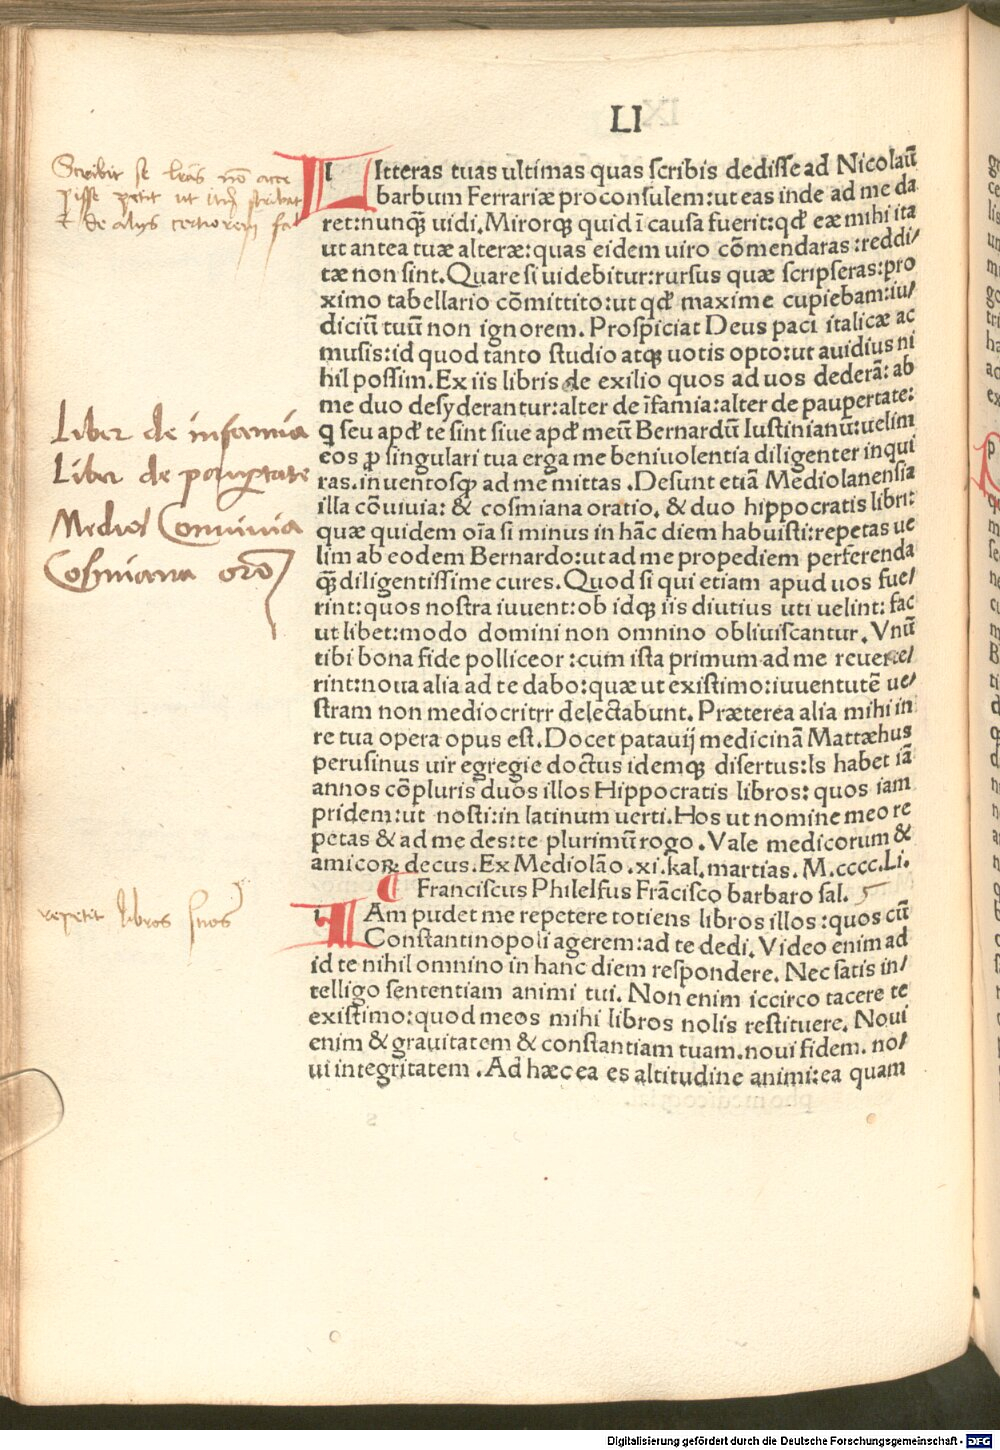 LI
Scribit se lr̃as nõ acce
pisse petit ut iteȝ scribat
& de alijs certiorem fa
LItteras tuas ultimas quas scribis dedisse ad Nicolaũ
barbum Ferrariæ proconsulem:ut eas inde ad me da
ret:nunqꝫ uidi.Mirorqꝫ quid ĩ causa fuerit:qđ eæ mihi ita
ut antea tuæ alteræ:quas eidem uiro cõmendaras:reddi/
tæ non sint.Quare si uidebitur:rursus quæ scripseras:pro
ximo tabellario cõmittito:ut qđ maxime cupiebam:iu/
diciũ tuũ non ignorem.Prospiciat Deus paci italicæ ac
musis:id quod tanto studio atqꝫ uotis opto:ut auidius ni
hil possim.Ex iis libris de exilio quos ad uos dederã:ab
me duo desyderantur:alter de ĩfamia:alter de paupertate:
Liber de infamia
q seu apđ te sint siue apđ meũ Bernardũ Iustinianũ:uelim
eos ꝓ singulari tua erga me beniuolentia diligenter inqui
Liber de paupertate
ras.inuentosqꝫ ad me mittas.Desunt etiã Mediolanensia
illa cõuiuia: & cosmiana oratio. & duo hippocratis libri:
Mediol Conuiuia
quæ quidem oĩa si minus in hãc diem habuisti:repetas ue
lim ab eodem Bernardo:ut ad me propediem perferenda
Cosmiana oro
qꝫ diligentissime cures.Quod si qui etiam apud uos fue/
rint:quos nostra iuuent:ob idqꝫ iis diutius uti uelint:fac
ut libet:modo domini non omnino obliuiscantur.Vnũ
tibi bona fide polliceor:cum ista primum ad me reuerte/
rint:noua alia ad te dabo:quæ ut existimo:iuuentutẽ ue/
stram non mediocritrr delectabunt.Præterea alia mihi in
re tua opera opus est.Docet patauij medicinã Mattæhus
perusinus uir egregie doctus idemqꝫ disertus:Is habet iã
annos cõpluris duos illos Hippocratis libros:quos iam
pridem:ut nosti:in latinum uerti.Hos ut nomine meo re
petas & ad me des:te plurimũ rogo.Vale medicorum &
amicoꝝ decus.Ex Mediolão.xi.kal.martias.M.cccc.Li.
Franciscus Philelfus Frãcisco barbaro sal. 5
repetit libros suos
IAm pudet me repetere totiens libros illos:quos cũ
Constantinopoli agerem:ad te dedi.Video enim ad
id te nihil omnino in hanc diem respondere.Nec satis in/
telligo sententiam animi tui.Non enim iccirco tacere te
existimo:quod meos mihi libros nolis restituere.Noui
enim & grauitatem & constantiam tuam.noui fidem.no/
ui integritatem.Ad hæc ea es altitudine animi:ea quam
Digitalisierung gefördert durch die Deutsche Forschungsgemeinschaft - DFG